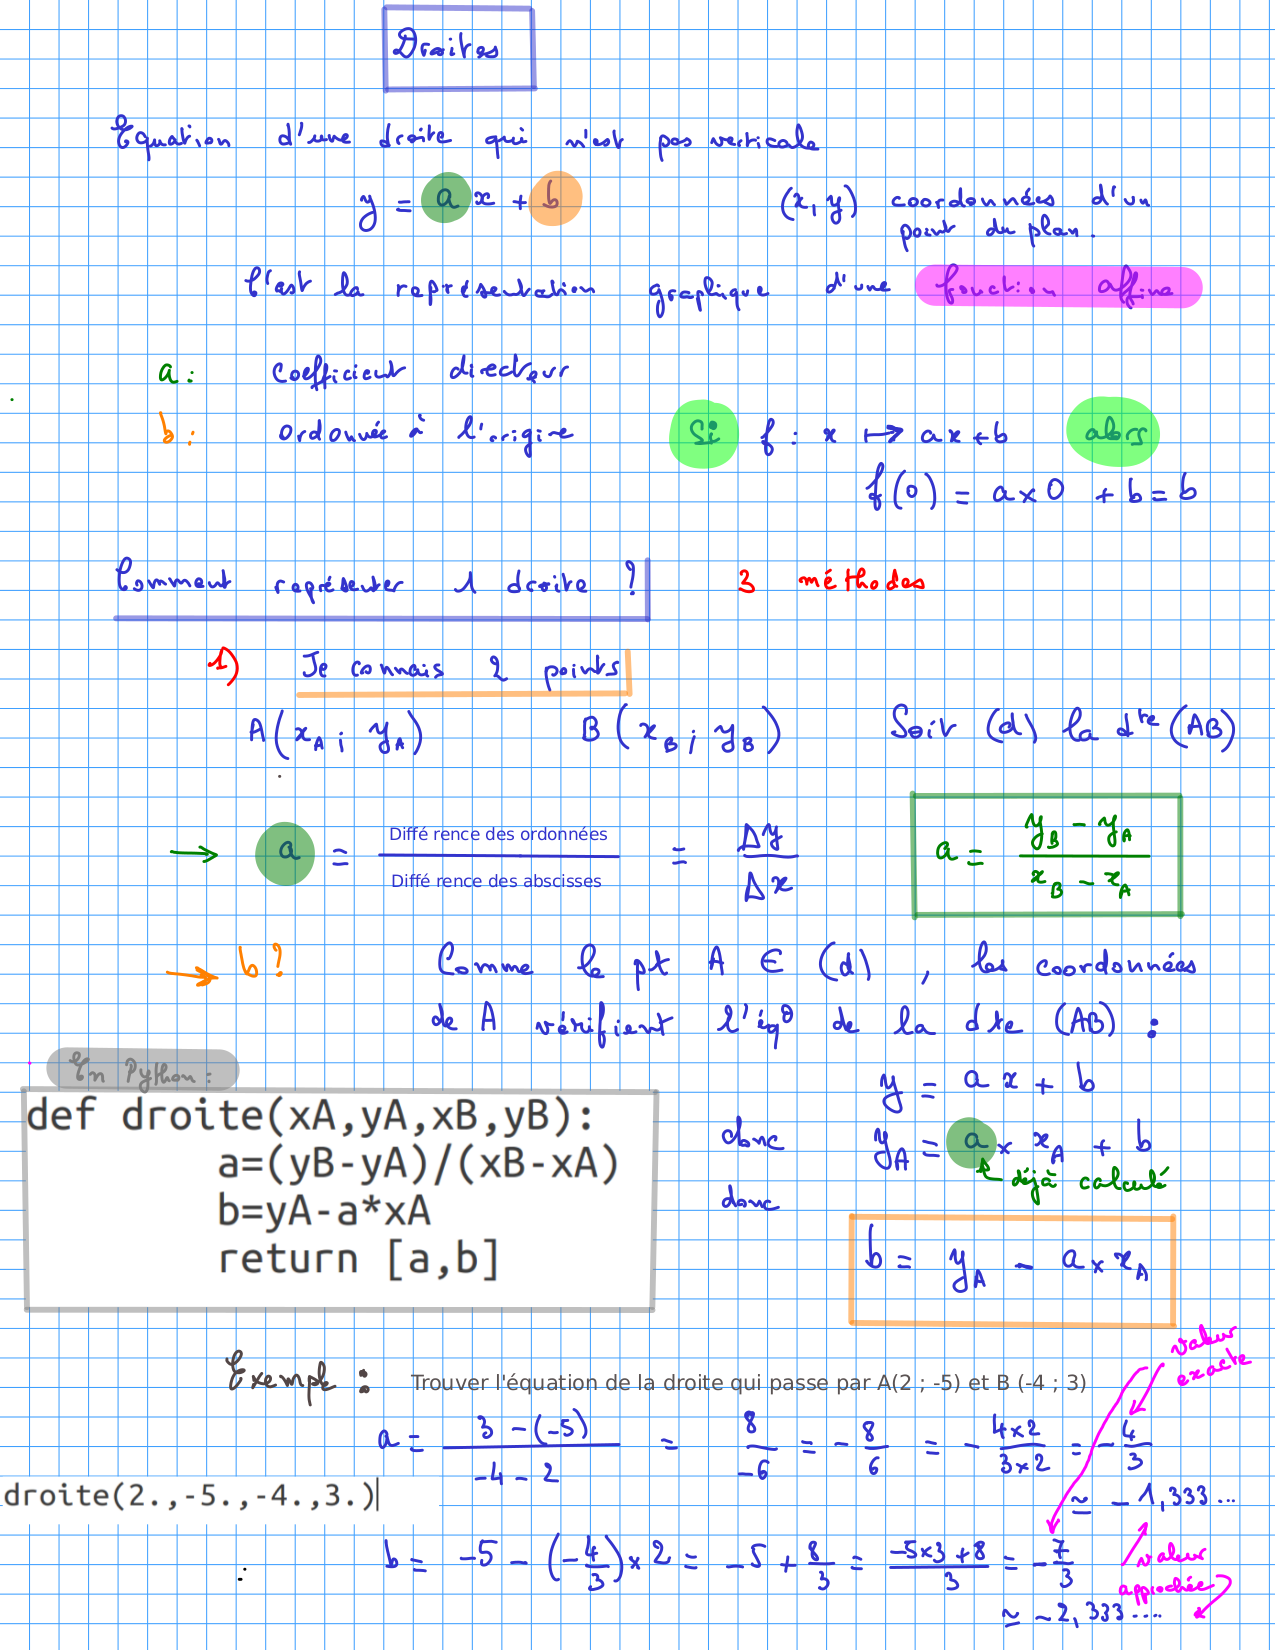 Droites
Equation d'une droite qui n'est pas verticale
y = a x + b
(x, y) coordonnées d'un
point du plan.
C'est la représentation graphique d'une fonction affine
a : coefficient directeur
b : ordonnée à l'origine
Si f : x ↦ ax + b alors
f(0) = a × 0 + b = b
Comment représenter 1 droite ?
3 méthodes
1) Je connais 2 points
A(xA ; yA) B(xB ; yB) Soit (d) la dte (AB)
→ a = Différence des ordonnées / Différence des abscisses = Δy / Δx
a = (yB - yA) / (xB - xA)
→ b ? Comme le pt A ∈ (d) , les coordonnées
de A vérifient l'éq° de la dte (AB) :
y = a x + b
donc yA = a × xA + b
déjà calculé
donc
b = yA - a × xA
En Python :
def droite(xA,yA,xB,yB):
a=(yB-yA)/(xB-xA)
b=yA-a*xA
return [a,b]
Exemple : Trouver l'équation de la droite qui passe par A(2 ; -5) et B (-4 ; 3)
valeur
exacte
a = (3 - (-5)) / (-4 - 2) = 8 / -6 = - 8/6 = - (4×2)/(3×2) = - 4/3
≃ - 1,333...
droite(2.,-5.,-4.,3.)
b = -5 - (- 4/3) × 2 = -5 + 8/3 = (-5×3 + 8)/3 = - 7/3
≃ -2,333....
valeur
approchée